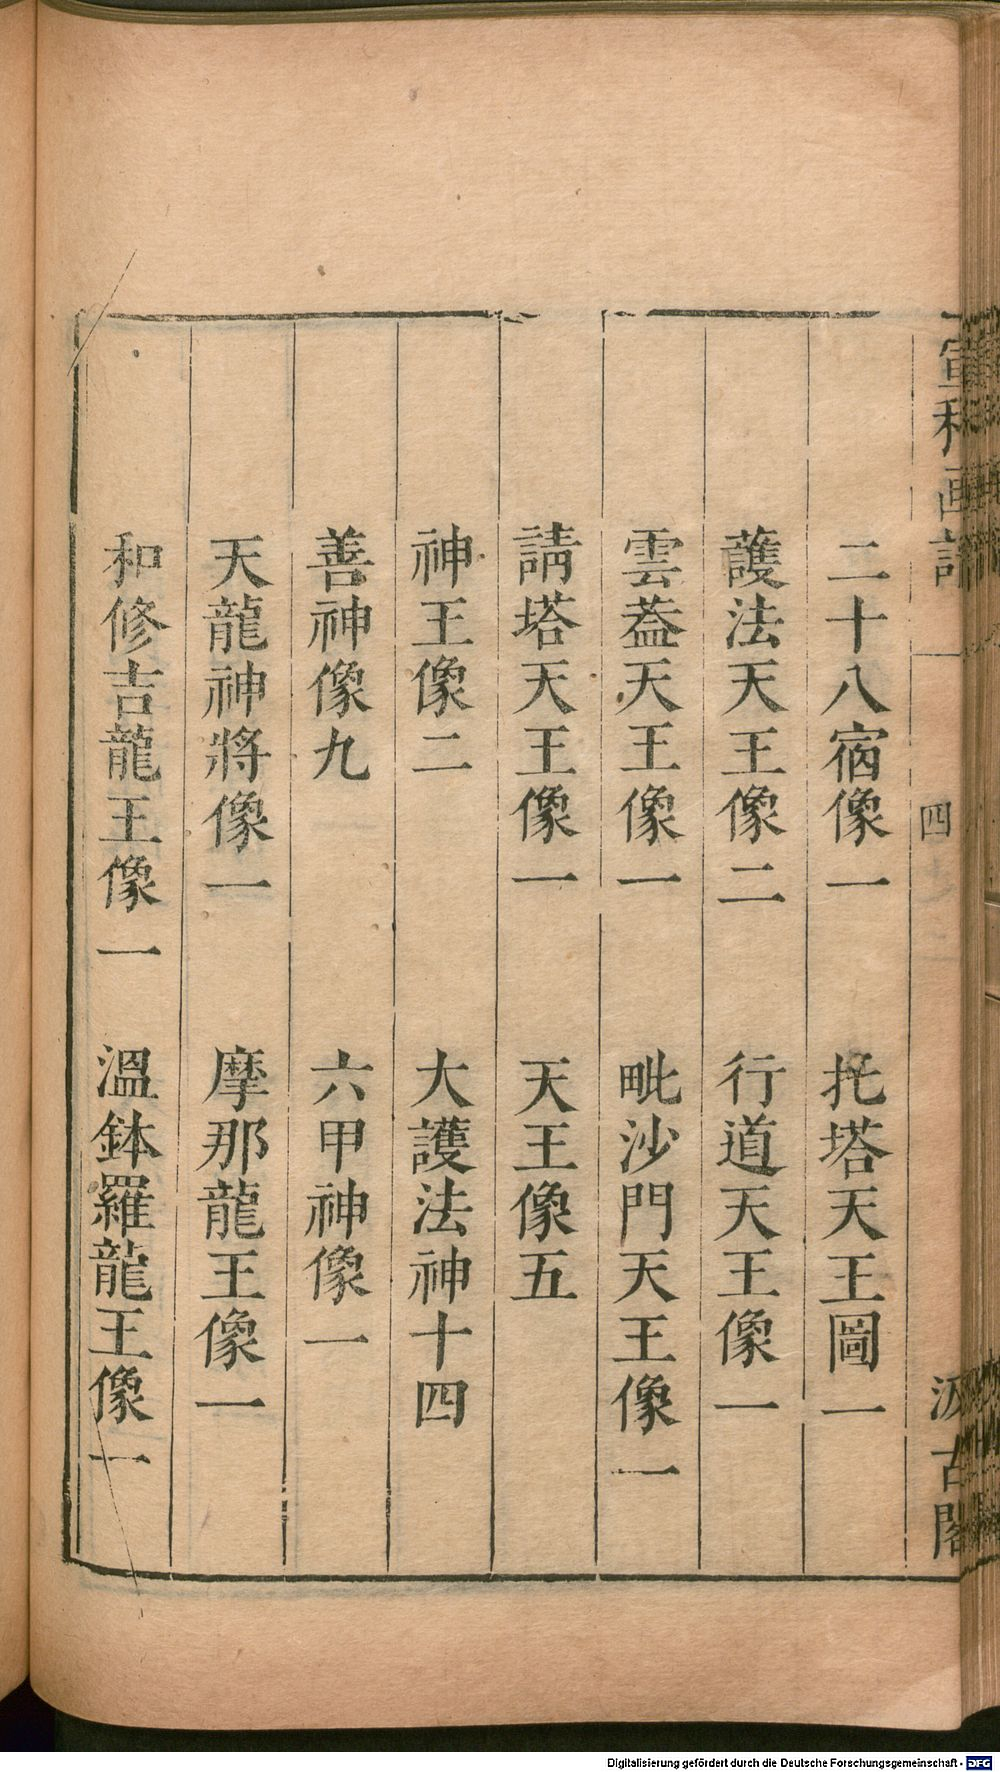 宣和画譜 四 汲古閣
二十八宿像一 托塔天王圖一
護法天王像二 行道天王像一
雲葢天王像一 毗沙門天王像一
請塔天王像一 天王像五
神王像二 大護法神十四
善神像九 六甲神像一
天龍神將像一 摩那龍王像一
和修吉龍王像一 溫鉢羅龍王像一
Digitalisierung gefördert durch die Deutsche Forschungsgemeinschaft - DFG